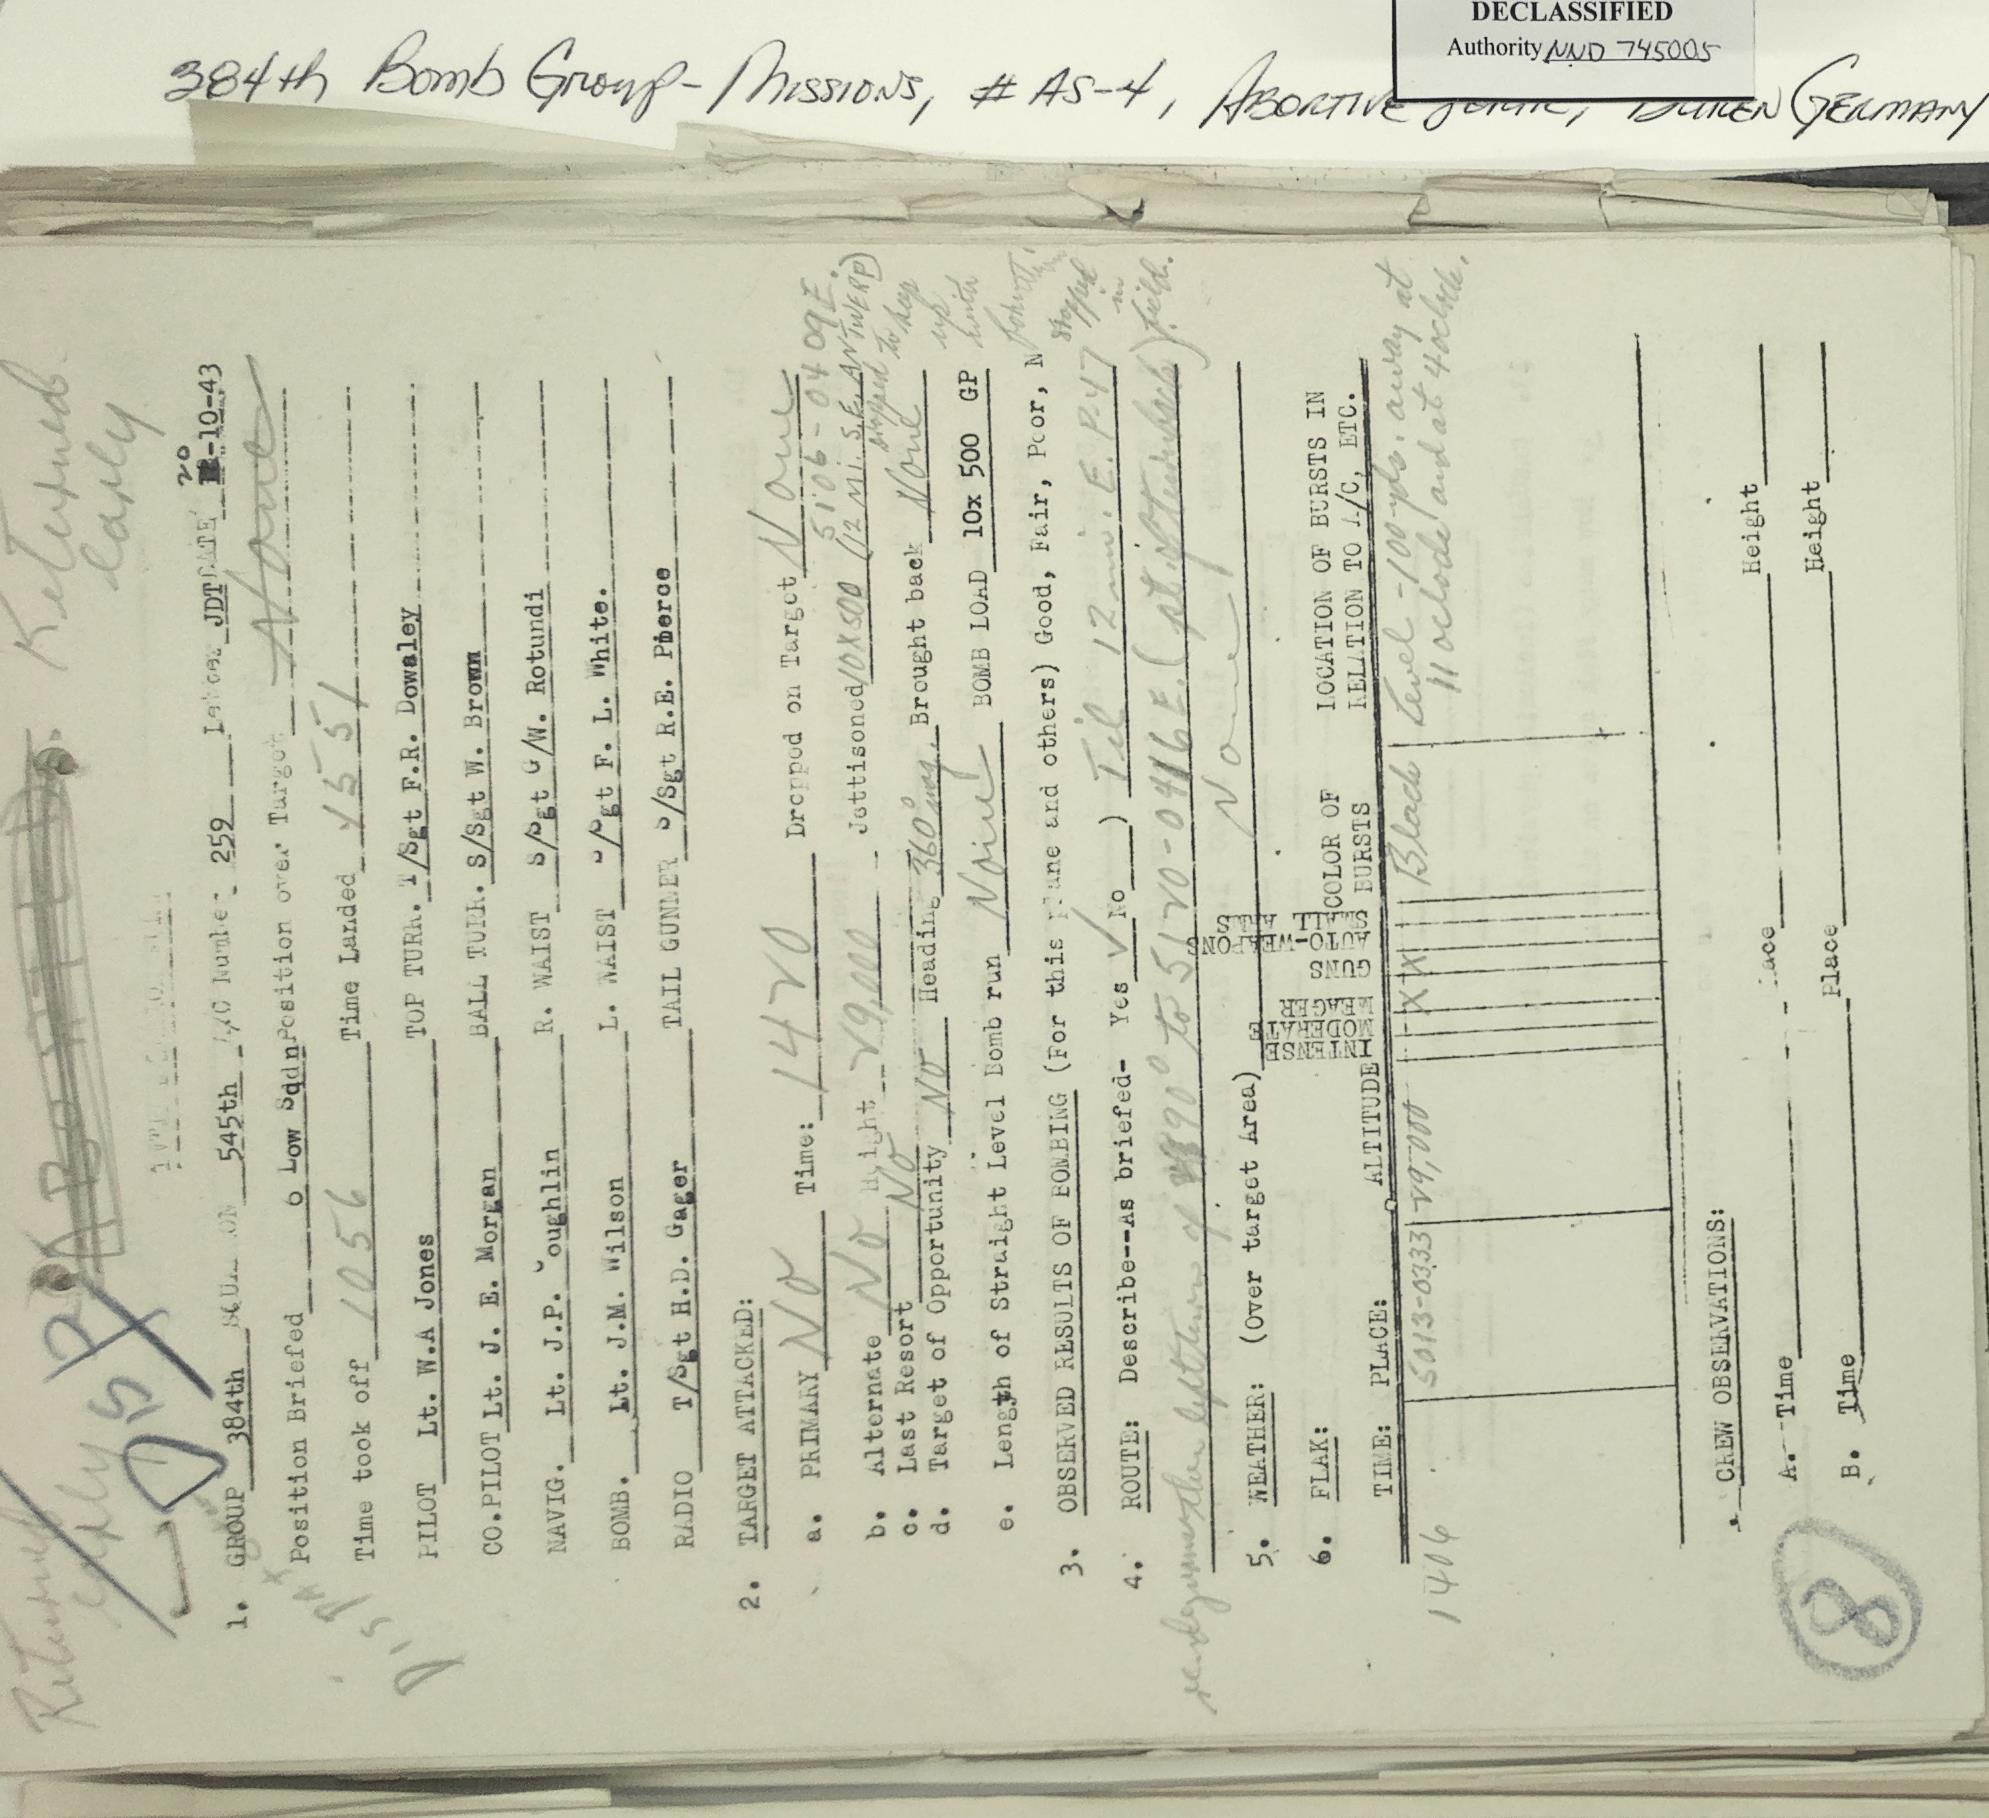 DECLASSIFIED
Authority NND 745005
384th Bomb Group - Missions, # AS-4, Abortive Germany
Returned Early
Returned Early
1. GROUP 384th 545th A/C Number 259 Letter JDT DATE 20-10-43
Position Briefed Low Sqdn Position over Target None
Time took off 1056 Time Landed 1551
PILOT Lt. W.A Jones TOP TURR. T/Sgt F.R. Dowsley
CO.PILOT Lt. J. E. Morgan BALL TURR. S/Sgt W. Brown
NAVIG. Lt. J.P. oughlin R. WAIST S/Sgt G/W. Rotundi
BOMB. Lt. J.M. Wilson L. WAIST S/Sgt F. L. White.
RADIO T/Sgt H.D. Gager TAIL GUNNER S/Sgt R.E. Pierce
2. TARGET ATTACKED:
a. PRIMARY No Time: 1420 Dropped on Target None
5106-0409E.
b. Alternate No Height 29,000 Jettisoned 10x500 (12 MI. S.E. ANTWERP)
c. Last Resort No
d. Target of Opportunity No Heading 360° mag. Brought back None
stopped to keep up with
e. Length of Straight Level Bomb run None BOMB LOAD 10x 500 GP
3. OBSERVED RESULTS OF BOMBING (For this plane and others) Good, Fair, Poor, N
4. ROUTE: Describe--As briefed- Yes ✓ No ) Til 12 min. E. P-47
rendezvous then left turn of 390° to 5120-0416E. (pt. of turnback)
stopped in field.
5. WEATHER: (Over target Area) None
6. FLAK:
TIME: PLACE: ALTITUDE INTENSE MODERATE MEAGER GUNS AUTO-WEAPONS SMALL ARMS COLOR OF BURSTS LOCATION OF BURSTS IN RELATION TO A/C, ETC.
1406 5013-0333 29,000 X X Black Level - 100 yds. away at
11 oclock and at 4 oclock.
CREW OBSERVATIONS:
A. Time Place Height
B. Time Place Height
8